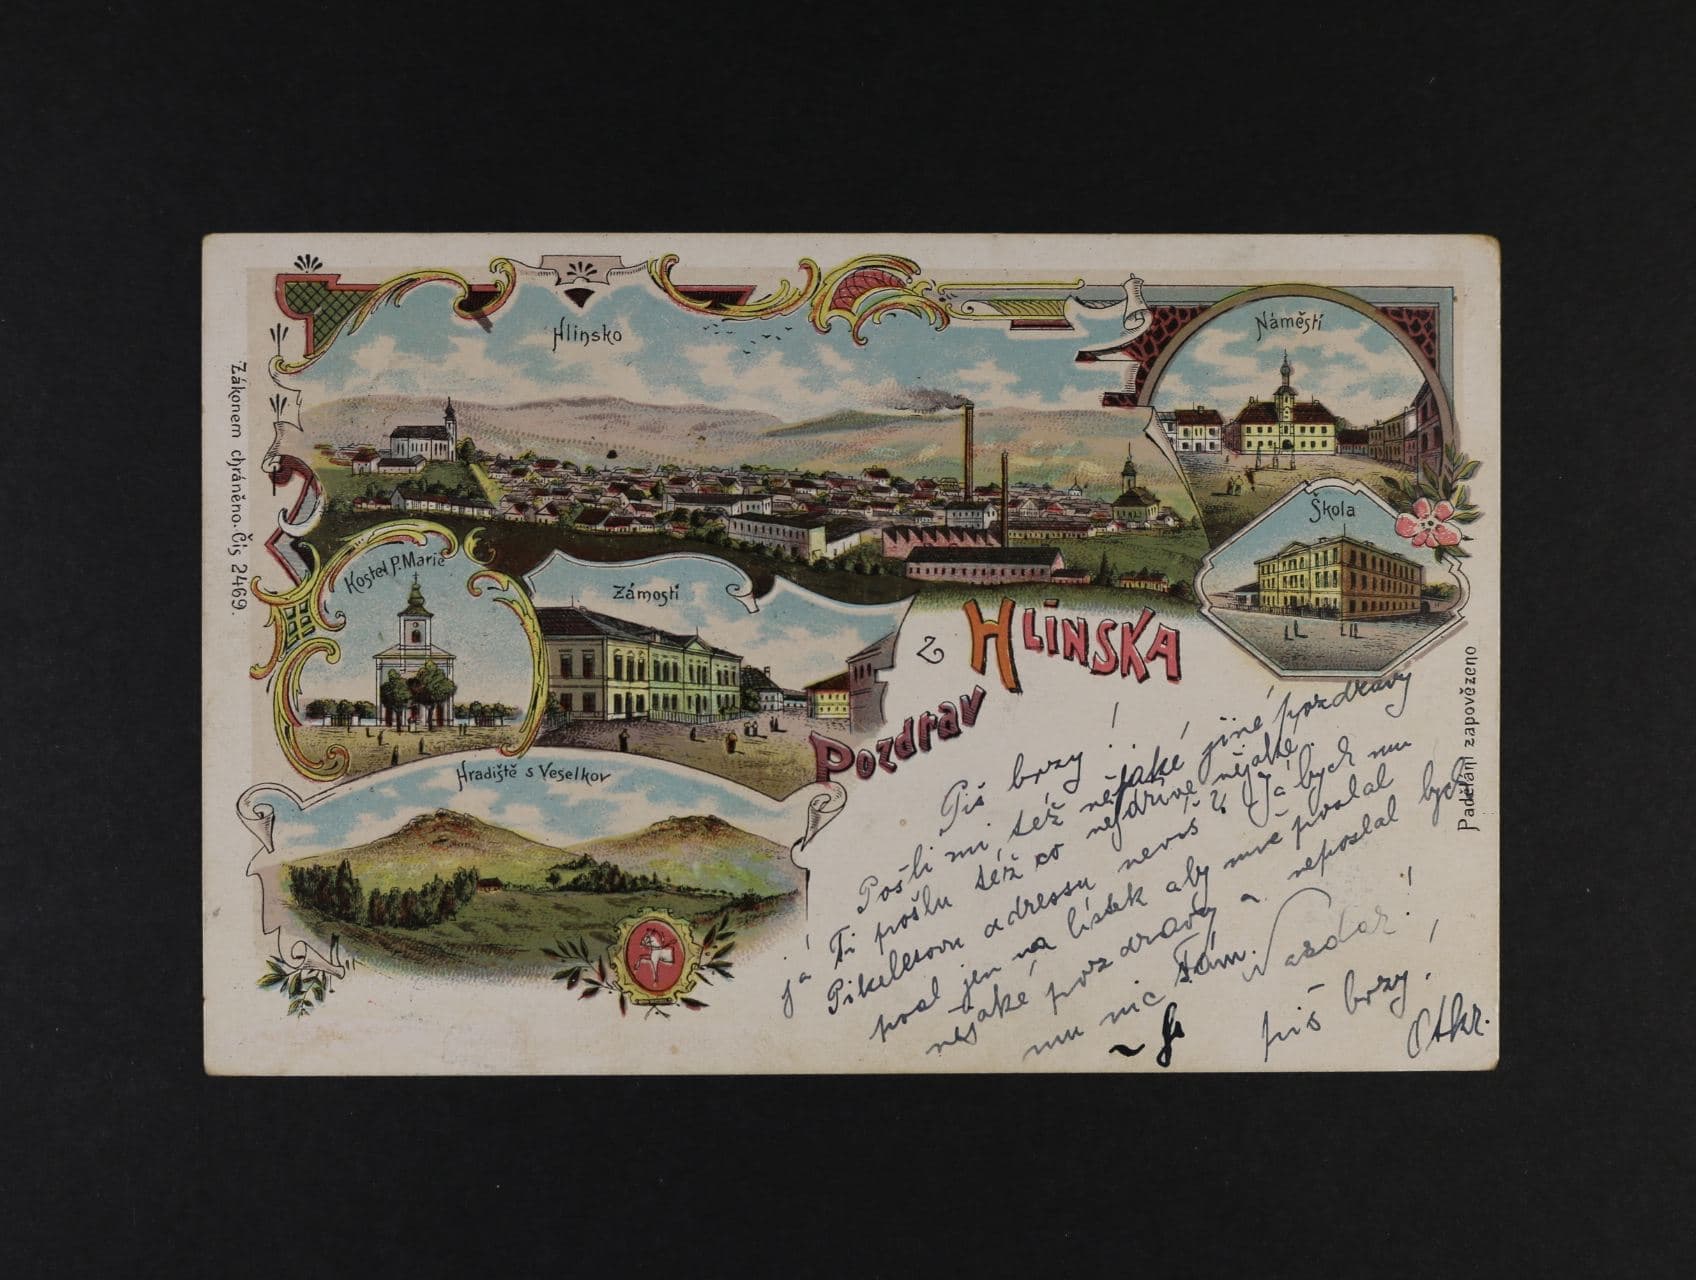 Zákonem chráněno. Čís 2469.
Hlinsko
Náměstí
Škola
Kostel P. Marie
Zámostí
Hradiště s Veselkov
Pozdrav z HLINSKA
Padělání zapovězeno
Piš brzy!
Pošli mi též nějaké jiné pozdravy
já Ti pošlu též co nejdříve nějaké.
Pikelesovu adressu nevíš? Já bych mu
poslal jen na lístek aby mně poslal
nějaké pozdravy a neposlal bych
mu nic tám. Nazdar!
piš brzy!
Otkr.